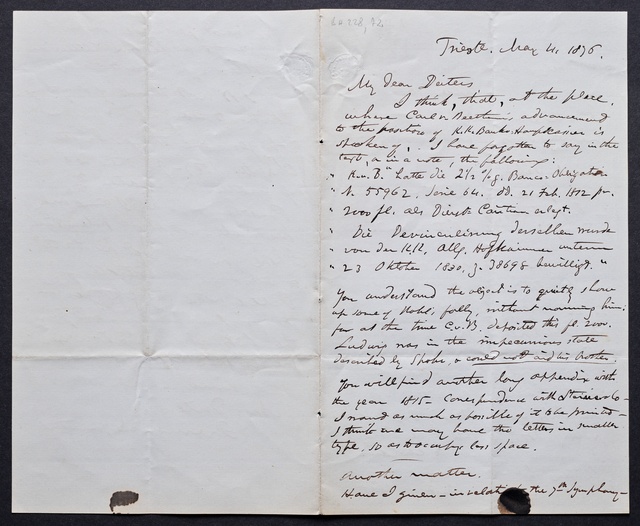 Trieste. May 4. 1876.
My dear Deiters
I think, that, at the place,
where Carl v. Beethn's advancement
to the position of K.K. Banko Hauptkassier is
spoken of, I have forgotten to say in the
text, or in a note, the following:
" K. v. B. hatte die 2½ %g. Banco-Obligation
" N. 55962, Serie 64. dd. 21 Feb. 1812 pr.
" 2000 fl. als Dienst Caution erlegt.
" Die Devinculirung derselben wurde
" von der K.K. Allg. Hofkammer unterm
" 23 Oktober 1830, z. 38698 bewilligt. "
You understand the object is to quietly show
up some of Nohl's folly, without naming him:
for at the time C. v. B. deposited this fl. 2000.
Ludwig was in the impecunious state
described by Spohr, & could not aid his brother.
You will find another long appendix with
the year 1815. Correspondence with Steiner & Co —
I want as much as possible of it to be printed —
I think we may have the letters in smaller
type, so as to occupy less space.
Another matter.
Have I given — in relation to the 7th Symphony —